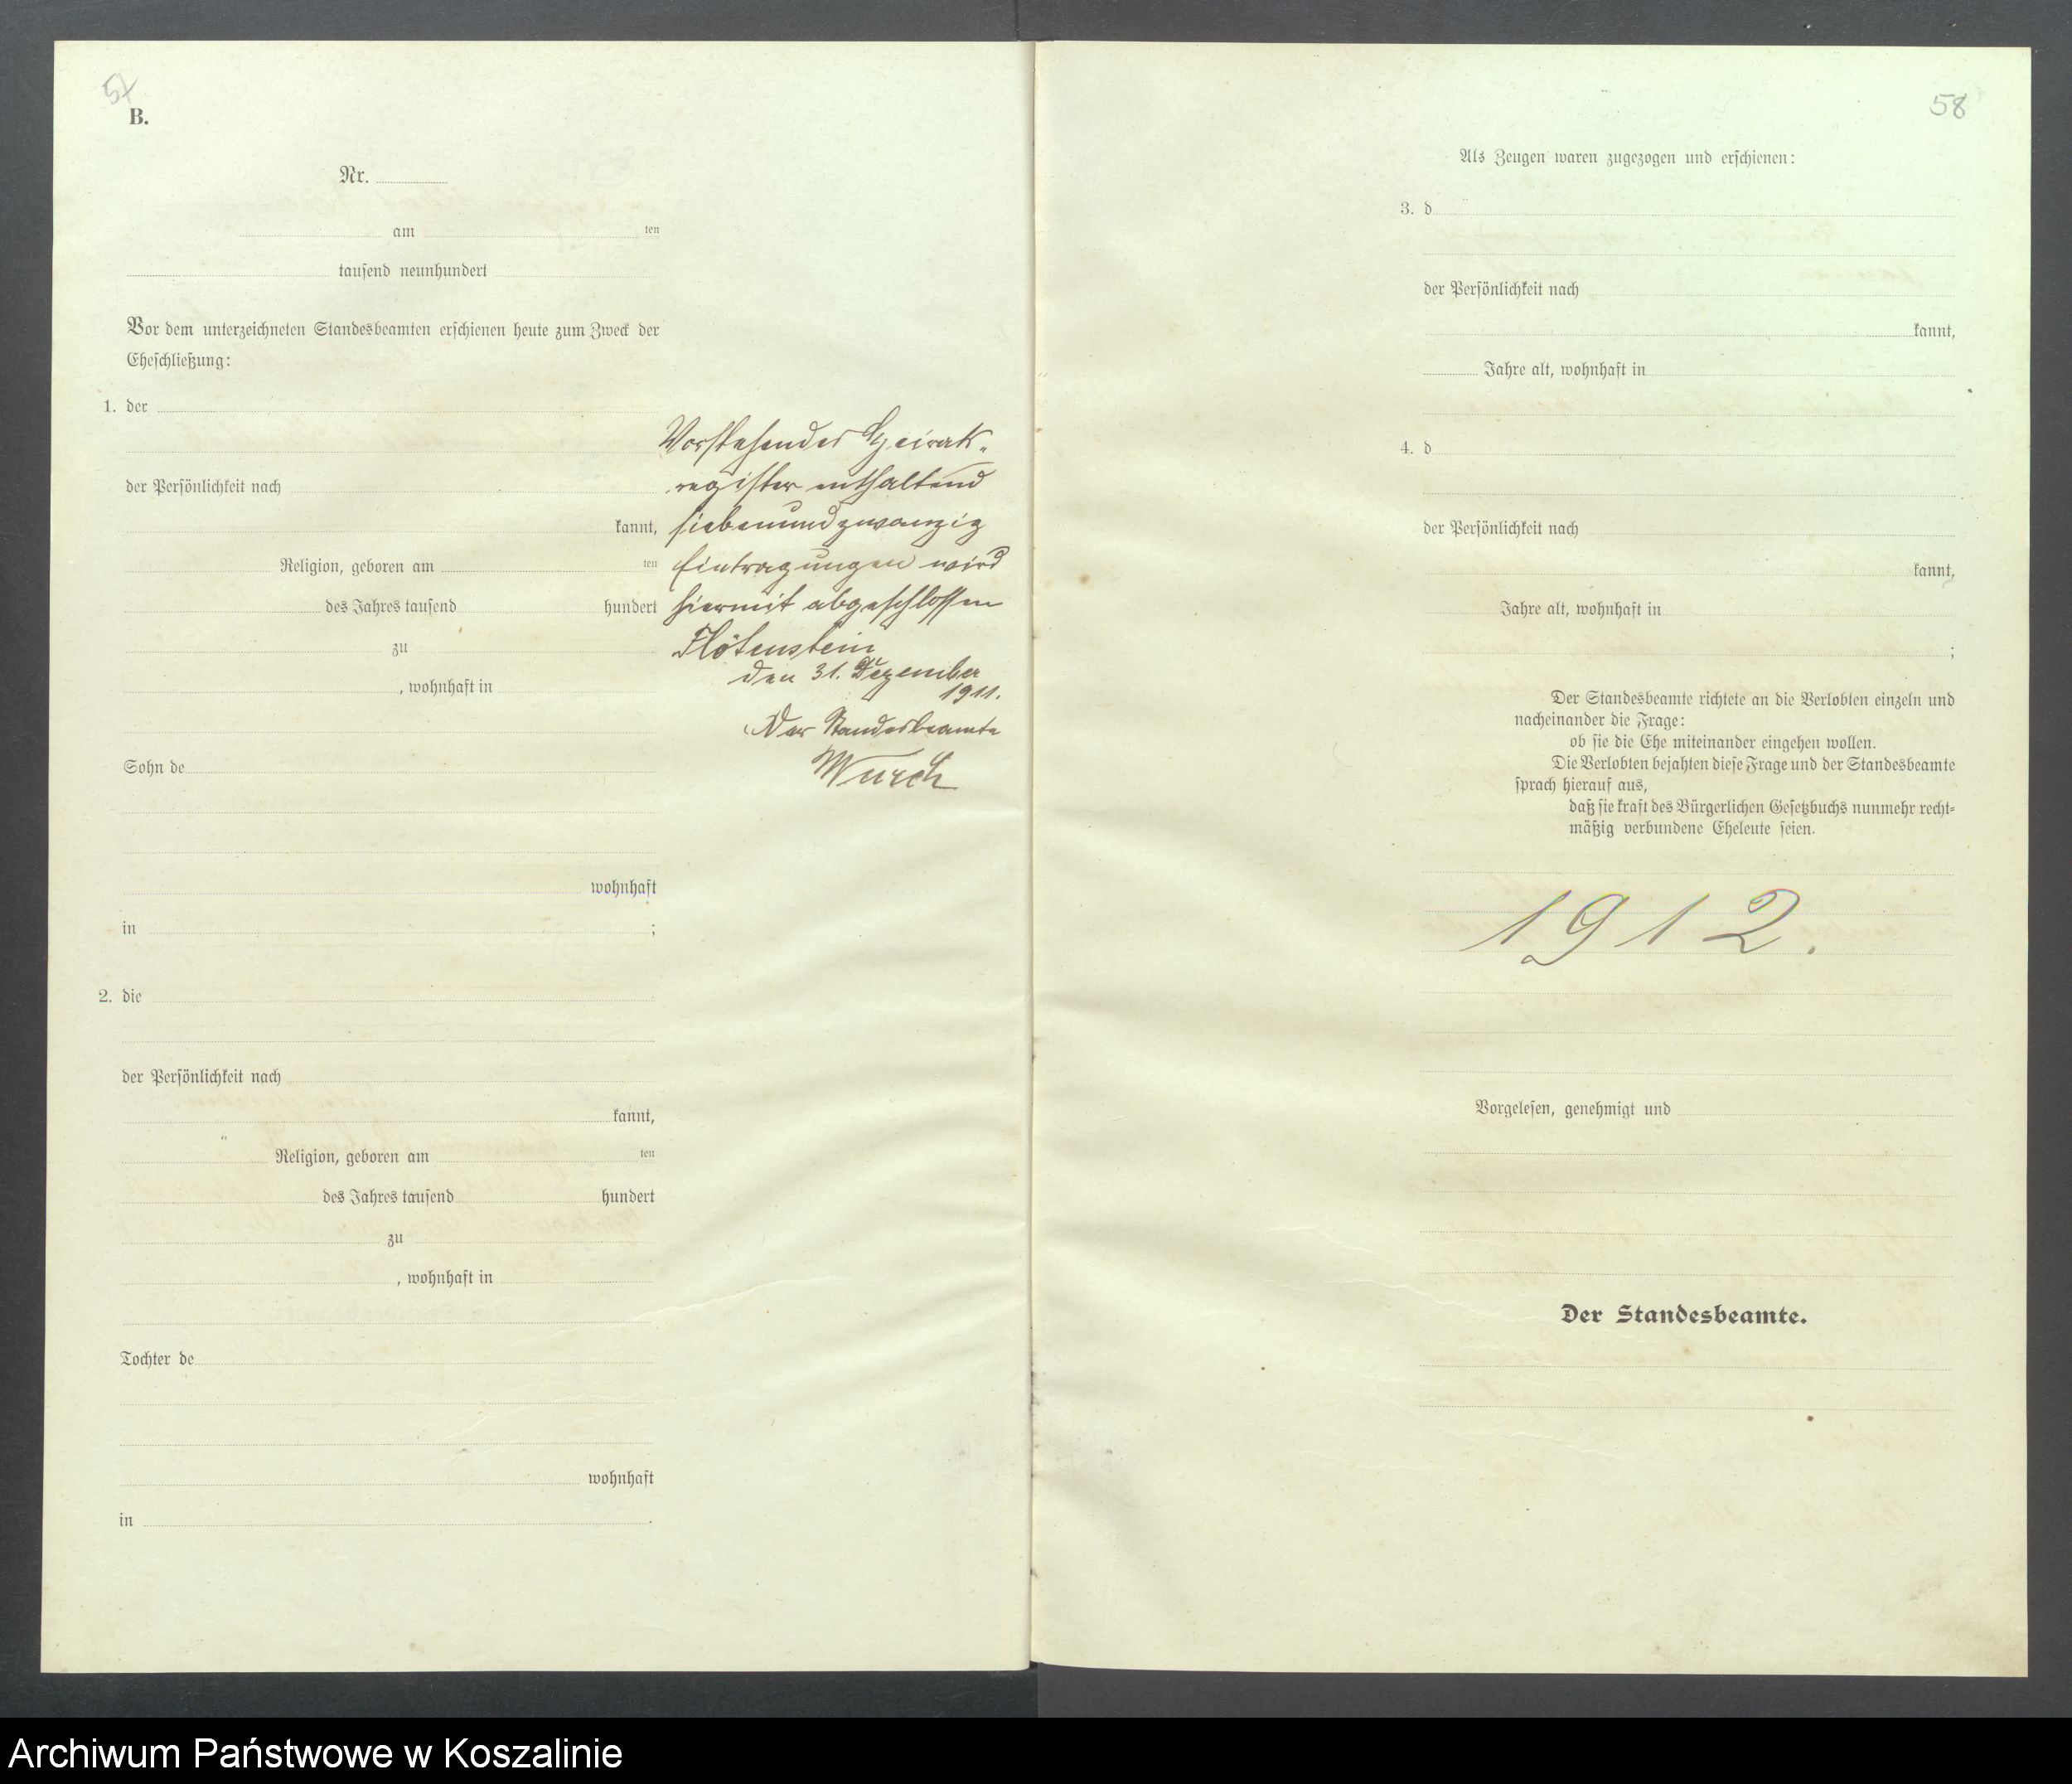 57
B.
Nr.
am ten
tausend neunhundert
Vor dem unterzeichneten Standesbeamten erschienen heute zum Zweck der
Eheschließung:
1. der
der Persönlichkeit nach
kannt,
Religion, geboren am ten
des Jahres tausend hundert
zu
, wohnhaft in
Sohn de
wohnhaft
in ;
2. die
der Persönlichkeit nach
kannt,
Religion, geboren am ten
des Jahres tausend hundert
zu
, wohnhaft in
Tochter de
wohnhaft
in .
Vorstehendes Heirats-
register enthaltend
siebenundzwanzig
Eintragungen wird
hiermit abgeschlossen
Flötenstein
den 31. Dezember
1911.
Der Standesbeamte
58
Als Zeugen waren zugezogen und erschienen:
3. d
der Persönlichkeit nach
kannt,
Jahre alt, wohnhaft in
4. d
der Persönlichkeit nach
kannt,
Jahre alt, wohnhaft in
;
Der Standesbeamte richtete an die Verlobten einzeln und
nacheinander die Frage:
ob sie die Ehe miteinander eingehen wollen.
Die Verlobten bejahten diese Frage und der Standesbeamte
sprach hierauf aus,
daß sie kraft des Bürgerlichen Gesetzbuchs nunmehr recht-
mäßig verbundene Eheleute seien.
1912.
Vorgelesen, genehmigt und
Der Standesbeamte.
Archiwum Państwowe w Koszalinie